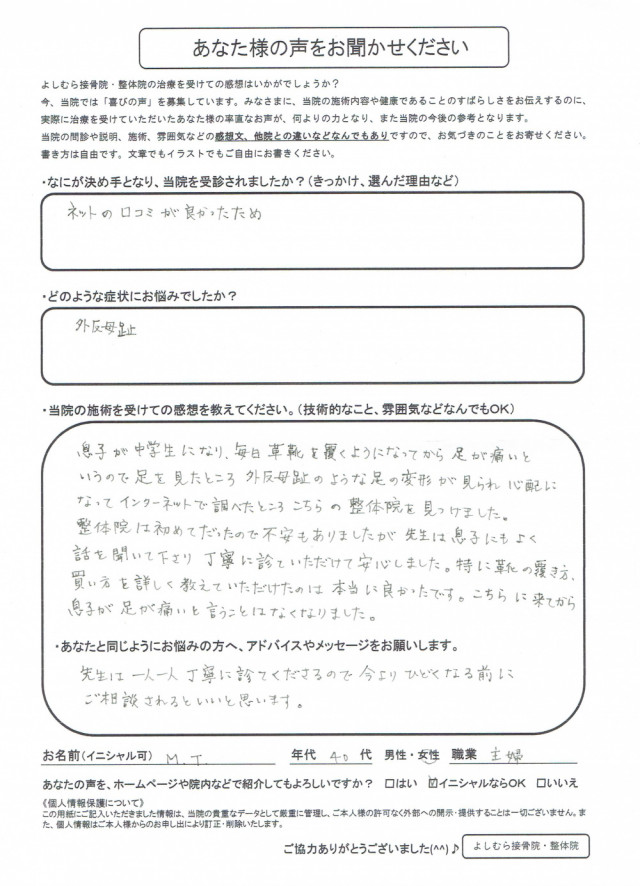 あなた様の声をお聞かせください
よしむら接骨院・整体院の治療を受けての感想はいかがでしょうか？
今、当院では「喜びの声」を募集しています。みなさまに、当院の施術内容や健康であることのすばらしさをお伝えするのに、
実際に治療を受けていただいたあなた様の率直なお声が、何よりの力となり、また当院の今後の参考となります。
当院の問診や説明、施術、雰囲気などの感想文、他院との違いなどなんでもありですので、お気づきのことをお寄せください。
書き方は自由です。文章でもイラストでもご自由にお書きください。
・なにが決め手となり、当院を受診されましたか？（きっかけ、選んだ理由など）
ネットの口コミが良かったため
・どのような症状にお悩みでしたか？
外反母趾
・当院の施術を受けての感想を教えてください。（技術的なこと、雰囲気などなんでもOK）
息子が中学生になり、毎日革靴を履くようになってから足が痛いと
いうので足を見たところ外反母趾のような足の変形が見られ心配に
なってインターネットで調べたところこちらの整体院を見つけました。
整体院は初めてだったので不安もありましたが先生は息子にもよく
話を聞いて下さり丁寧に診ていただけて安心しました。特に靴の履き方、
買い方を詳しく教えていただけたのは本当に良かったです。こちらに来てから
息子が足が痛いと言うことはなくなりました。
・あなたと同じようにお悩みの方へ、アドバイスやメッセージをお願いします。
先生は一人一人丁寧に診てくださるので今よりひどくなる前に
ご相談されるといいと思います。
お名前（イニシャル可） M.T. 年代 40 代 男性・女性 職業 主婦
あなたの声を、ホームページや院内などで紹介してもよろしいですか？ □はい ☑イニシャルならOK □いいえ
《個人情報保護について》
この用紙にご記入いただきました情報は、当院の貴重なデータとして厳重に管理し、ご本人様の許可なく外部への開示・提供することは一切ございません。ま
た、個人情報はご本人様からのお申し出により訂正・削除いたします。
ご協力ありがとうございました(^^)♪ よしむら接骨院・整体院